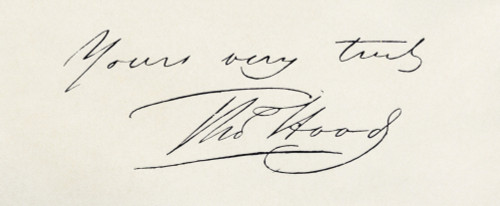 Yours very truly
Tho^s Hood